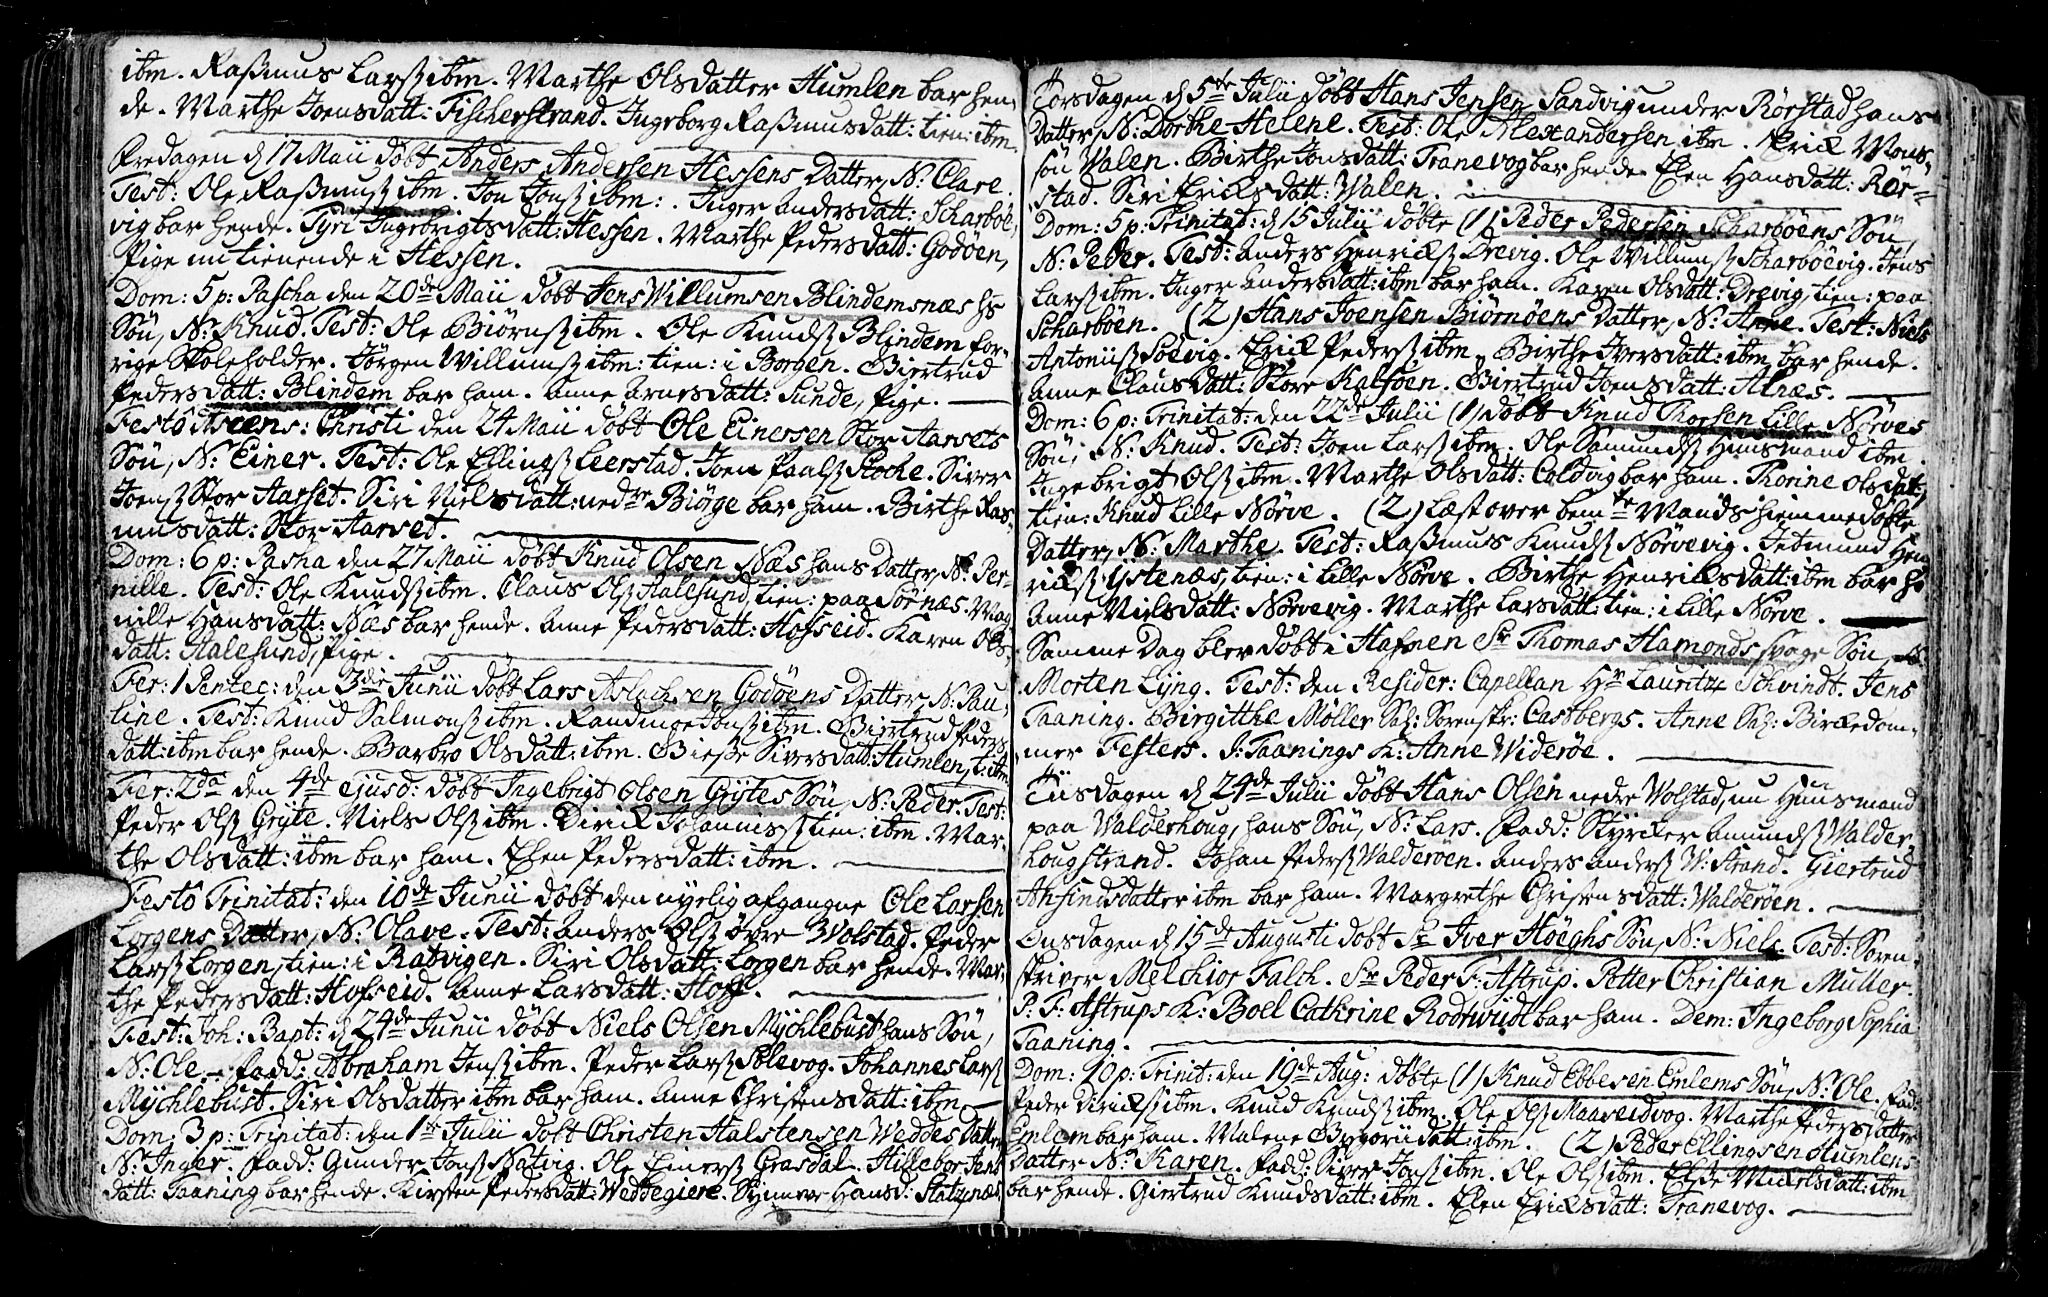 ibm. Rasmus Larsz ibm. Marthe Olsdatter Humlen bar hen-
de. Marthe Joensdatt: Fischerstrand. Ingeborg Rasmusdatt: tien: ibm.
Fredagen d 17 Maii döbt Anders Andersen Hessens Datter, N: Clare.
Test: Ole Rasmusz ibm. Jon Jonsz ibm:. Inger Andersdatt: Scharböe,
vig bar hende. Tyri Ingebrigtsdatt: Hessen. Marthe Pedersdatt: Godöen,
Pige nu tienende i Hessen.
Dom: 5 p: Pascha den 20de Maii döbt Jens Willumsen Blindemsnæs hs
Sön, N: Knud. Test: Ole Biörnsz ibm. Ole Knudsz Blindem for-
rige Skoleholder. Jörgen Willumsz ibm: tien: i Borgen. Giertrud
Pedersdatt: Blindem bar ham. Anne Arnesdatt: Sunde, Pige.
Festo Ascens: Christi den 24 Maii döbt Ole Einersen Stor Aarsets
Sön, N: Einer. Test: Ole Ellingsz Leerstad. Joen Paalsz Flocke. Siver
Joensz Stor Aarset. Siri Nielsdatt: nedre Biörge bar ham. Birthe Ras-
musdatt: Stor Aarset.
Dom: 6 p: Pasha den 27 Maii döbt Knud Olsen Næs hans Datter, N: Per-
nille. Test: Ole Knudsz ibm. Claus Olsz Halesund, tien: paa Sörnæs. Mag-
nille Hansdatt: Næs bar hende. Anne Pedersdatt: Hofseid. Karen Ols-
datt: Halesund, Pige.
Fer: 1 Pentec: den 3de Junii döbt Lars Aslachsen Godöens Datter, N: Pau-
line. Test: Knud Salmonsz ibm. Randmoe Jonsz ibm. Giertrud Peders-
datt: ibm bar hende. Barbro Olsdatt: ibm. Giesse Siversdatt: Humlen, t: ibm
Fer: 2da den 4de ejusd: döbt Ingebrigt Olsen Grÿtes Sön, N: Peder. Test:
Peder Olsz Grÿte. Niels Olsz ibm. Dirick Johannisz tien: ibm. Mar-
the Olsdatt: ibm bar ham. Elen Pedersdatt: ibm.
Festo Trinitat: den 10de Junii döbt den nyelig afgangne Ole Larsen
Lorgens Datter, N: Olave. Test: Anders Olsz övre Wolstad. Peder
Larsz Lorgen, tien: i Ratvigen. Siri Olsdatt: Lorgen bar hende. Mar-
the Pedersdatt: Hofseid. Anne Larsdatt: Hoff.
Fest: Joh: Bapt: d 24de Junii döbt Niels Olsen Mÿchlebust hans Sön,
N: Ole. Fadd: Abraham Jensz ibm. Peder Larsz Solevog. Johannes Larsz
Mÿchlebust. Siri Olsdatter ibm bar ham. Anne Christensdatt: ibm
Dom: 3 p: Trinitat: den 1te Julii döbt Christen Halstensen Weddes Datter
N: Inger. Fadd: Gunder Jonsz Natvig. Ole Einersz Grasdal. Hillebor Jens-
datt: Taaning bar hende. Kirsten Pedersdatt: Weddegiere. Hansd: Slatzenæs.
Torsdagen d 5te Julii döbt Hans Jensen Sandvig under Rörstad hans
Datter, N: Dorthe Helene. Test: Ole Alexandersen ibm. Erick Mons-
sön Walen. Birthe Jonsdatt: Tranevog bar hende. Elen Hansdatt: Rör-
stad. Siri Ericksdatt: Walen.
Dom: 5 p: Trinitad: d 15 Julii döbte (1) Peder Pedersen Scharböens Sön,
N: Peder. Test: Anders Henricksz Drevig. Ole Willumsz Scharböevig. Jens
Larsz ibm. Inger Andersdatt: ibm bar ham. Karen Olsdatt: Drevig, tien: paa
Scharböen. (2) Hans Joensen Biörnöens Datter, N: Anne. Test: Niels
Antoniisz Soevig. Erick Pedersz ibm. Birthe Iversdatt: ibm, bar hende.
Anne Clausdatt: Store Kalföen. Giertrud Joensdatt: Alnæs.
Dom: 6 p: Trinitat: den 22de Julii (1) döbt Knud Thorsen Lille Nörves
Sön, N: Knud. Test: Joen Larsz ibm. Ole Samundsz Huusmand ibm
Ingebrigt Olsz ibm. Marthe Olsdatt: Coldvig bar ham. Thorine Olsdatt:
tien: Knud Lille Nörve. (2) Læst over bemte Mands hiemmedöbte
Datter, N: Marthe. Test: Rasmus Knudsz Nörvevig. Jetmund Hen-
ricksz Ÿstenæs, tien: i Lille Nörve. Birthe Henricksdatt: ibm bar he
Anne Nielsdatt: Nörvevig. Marthe Larsdatt: tien: i Lille Nörve.
Samme Dag blev döbt i Hafnen Sr Thomas Hamonds svage Sön, N.
Morten Lÿng. Test: den Resider: Capellan Hr Lauritz Schvindt. Jens
Taaning. Birgitthe Møller Sal: Sorenskr: Castbergs. Anne Sal: Birkedom-
mer Festers. J: Taanings K: Anne Widerøe.
Tiisdagen d 24de Julii döbt Hans Olsen nedre Wolstad, nu Huusmand
paa Walderhoug, hans Sön, N: Lars. Fadd: Styrcker Amundsz Walder-
hougstrand. Johan Pedersz Walderöen. Anders Andersz W: Strand. Giertrud
Ansfindsdatter ibm bar ham. Margrethe Chrisensdatt: Walderöen.
Onsdagen d 15de Augusti döbt Sr Iver Höeghs Sön, N: Niels. Test: Soren-
skriver Melchior Falch. Sr Peder F: Astrup. Petter Christian Muller.
P. F: Astrups K: Boel Cathrine Rodtwüdt bar ham. Dem: Ingeborg Sophia
Taaning.
Dom: 10 p: Trinit: den 19de Aug: döbte (1) Knud Ebbesen Emlems Sön, N: Ole. Fadd:
Peder Dircksz ibm. Knud Knudsz ibm. Ole Olsz Maareidvog. Marthe Pedersdatter
Emlem bar ham. Malene Gregoriidatt: ibm. (2) Peder Ellingsen Humlens
Datter N: Karen. Fadd: Siver Jonsz ibm. Ole Olsz ibm. Else Mickelsdatt: ibm
bar hende. Giertrud Knudsdatt: ibm. Elen Ericksdatt: Tranevog.